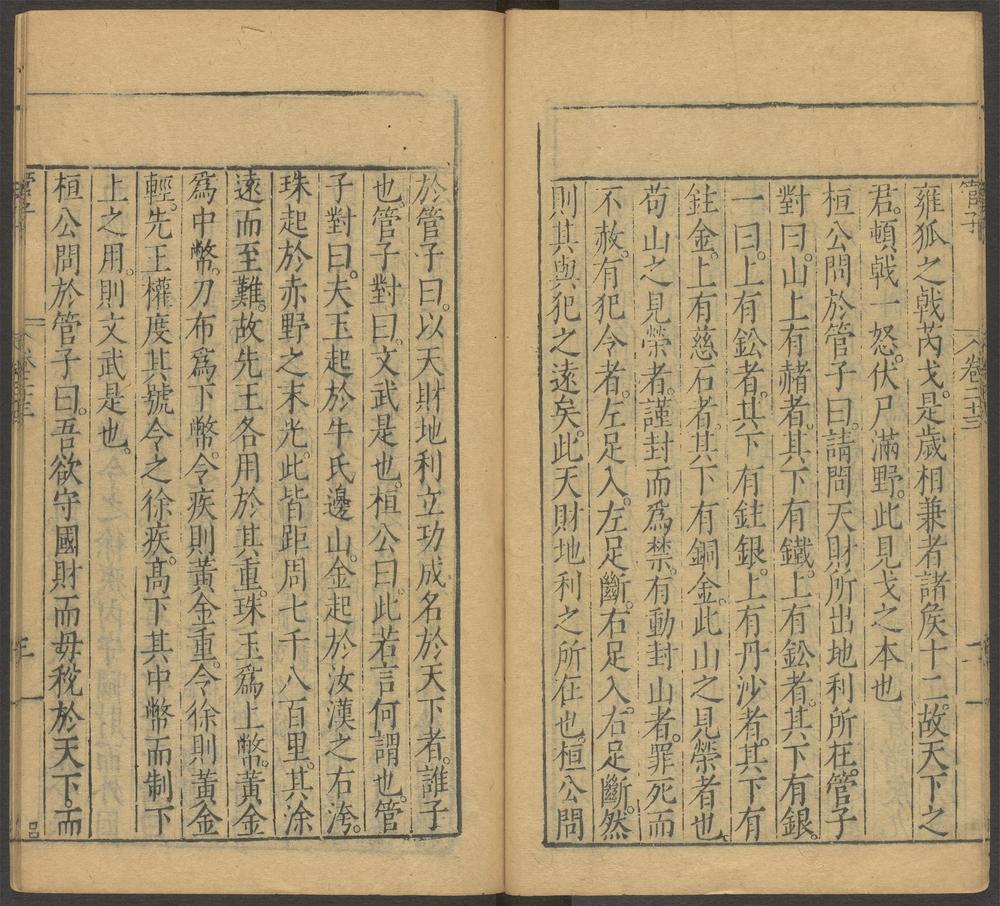 管子
卷二十三
雍狐之戟芮戈。是歲相兼者諸矦十二。故天下之
君。頓戟一怒。伏尸滿野。此見戈之本也
桓公問於管子曰。請問天財所出地利所在。管子
對曰。山上有赭者。其下有鐵。上有鈆者。其下有銀。
一曰。上有鈆者。其下有鉒銀。上有丹沙者。其下有
鉒金。上有慈石者。其下有銅金。此山之見榮者也
苟山之見榮者。謹封而爲禁。有動封山者。罪死而
不赦。有犯令者。左足入。左足斷。右足入。右足斷。然
則其與犯之遠矣。此天財地利之所在也。桓公問
於管子曰。以天財地利立功成名於天下者。誰子
也。管子對曰。文武是也。桓公曰。此若言何謂也。管
子對曰。夫玉起於牛氏邊山。金起於汝漢之右洿。
珠起於赤野之末光。此皆距周七千八百里。其涂
遠而至難。故先王各用於其重。珠玉爲上幣。黃金
爲中幣。刀布爲下幣。令疾則黃金重。令徐則黃金
輕。先王權度其號令之徐疾。高下其中幣而制下
上之用。則文武是也。
桓公問於管子曰。吾欲守國財而毋稅於天下。而